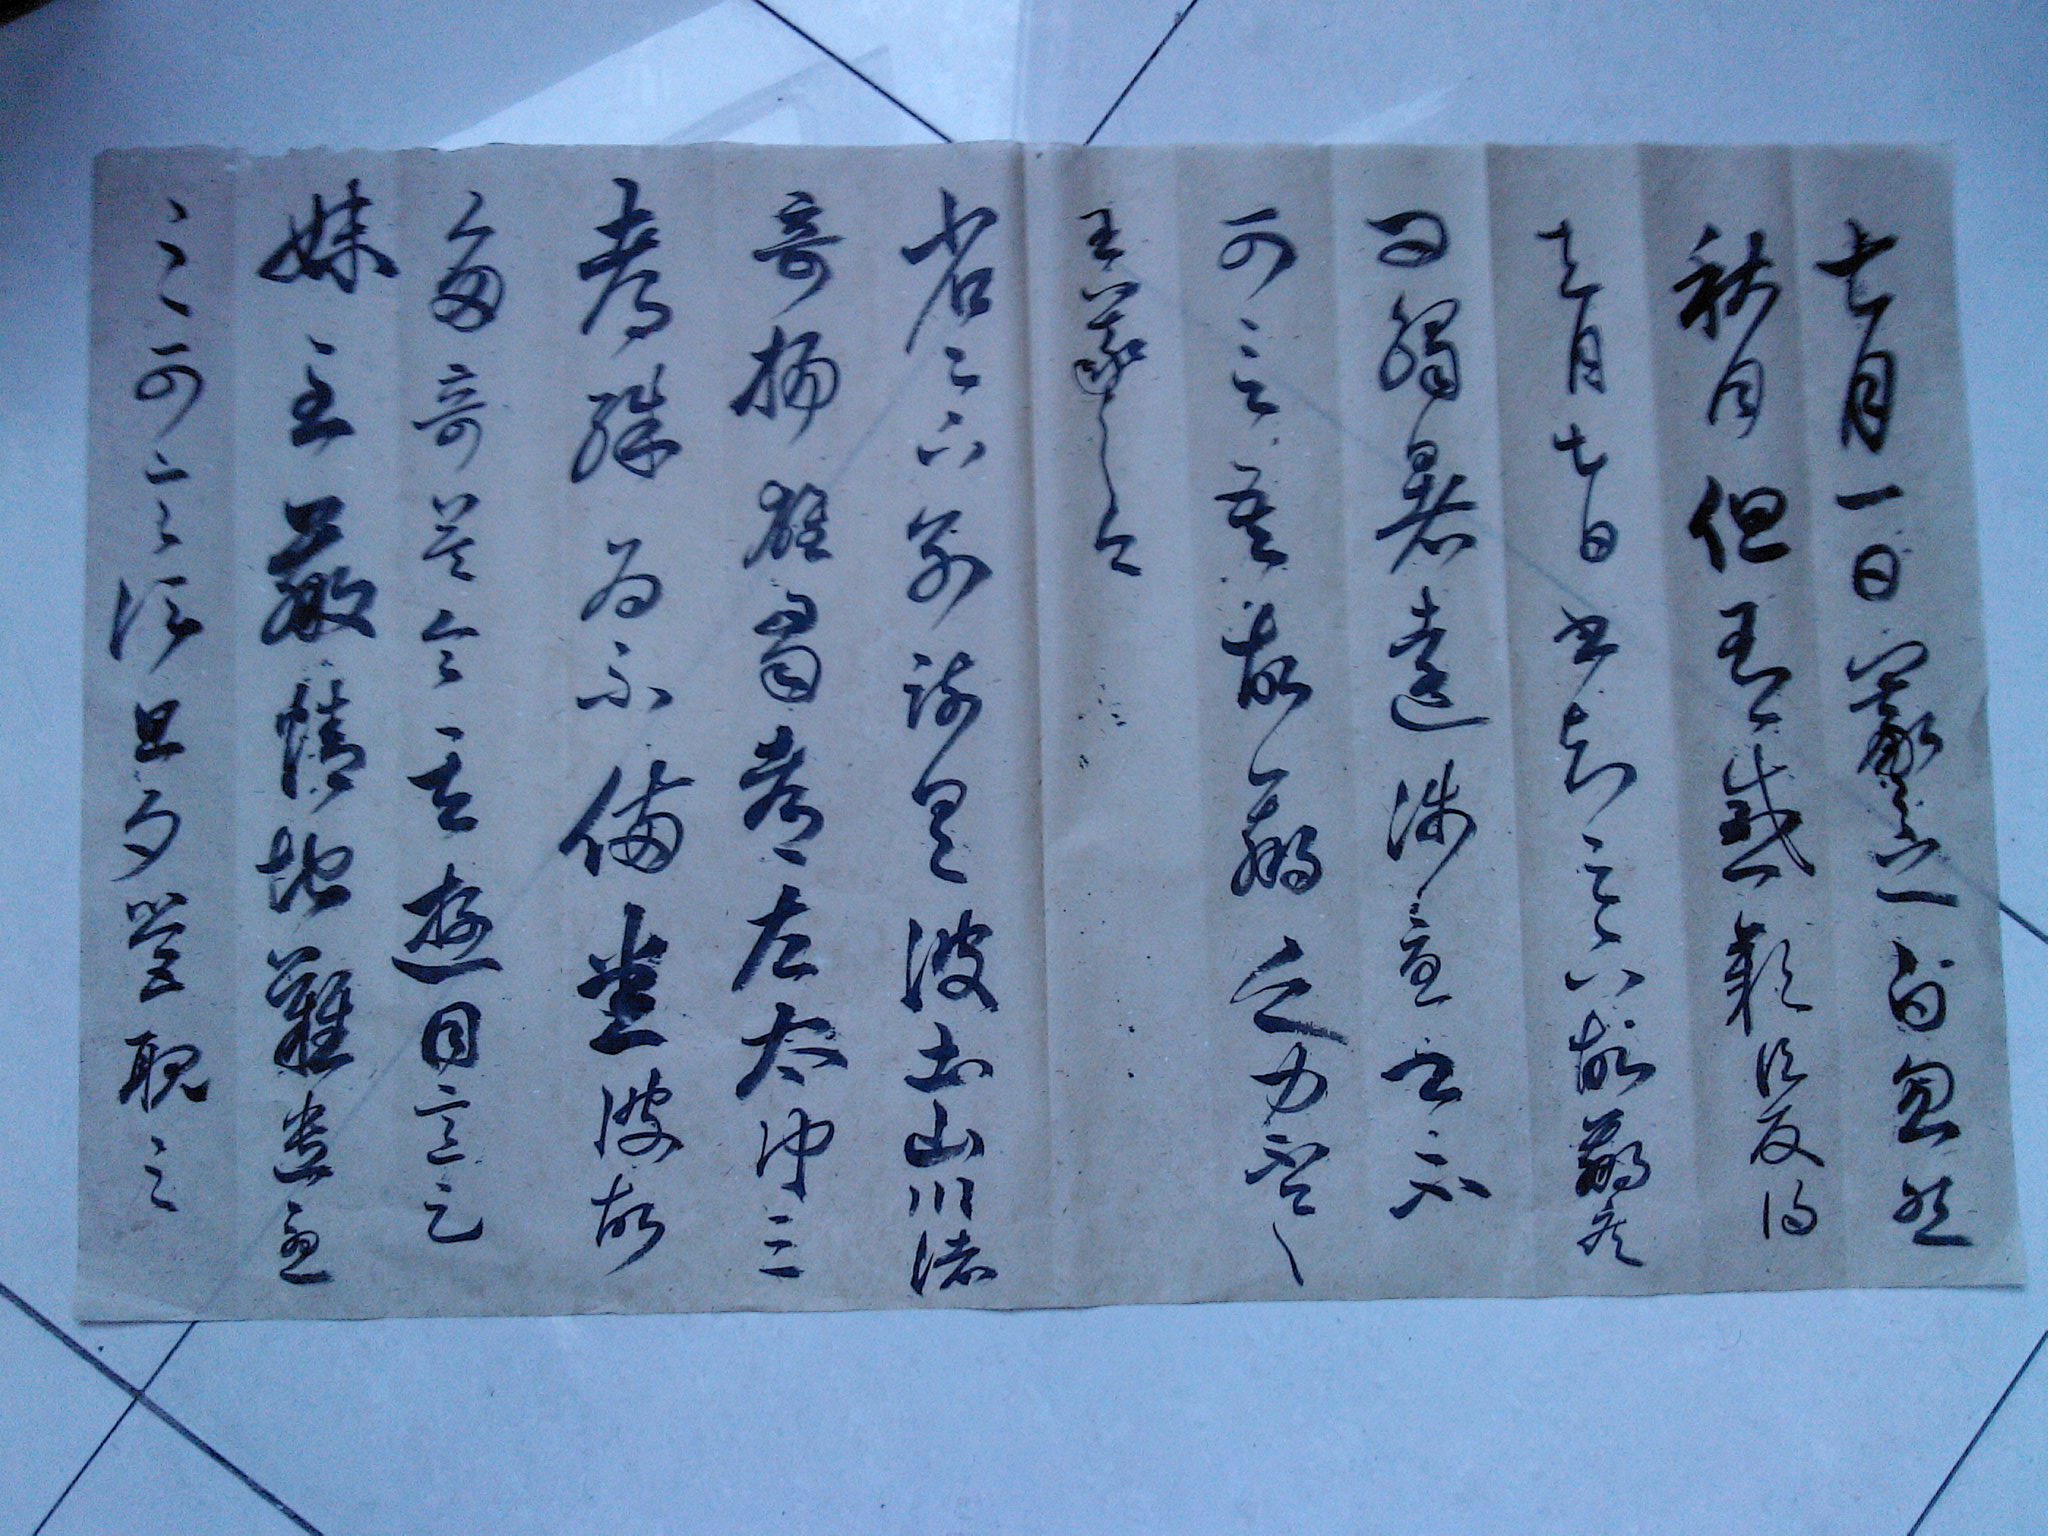 七月一日羲之白忽然
秋月但有感歎信反得
去月七日書知足下故羸疾
問觸暑遠涉憂卿不
可言吾故羸乏力不具
王羲之白
省足下別疏具彼土山川諸
奇揚雄蜀都左太沖三
都殊為不備悉彼故
多奇益令其遊目意足
妹至羸情地難遣憂
之可言須旦夕營視之